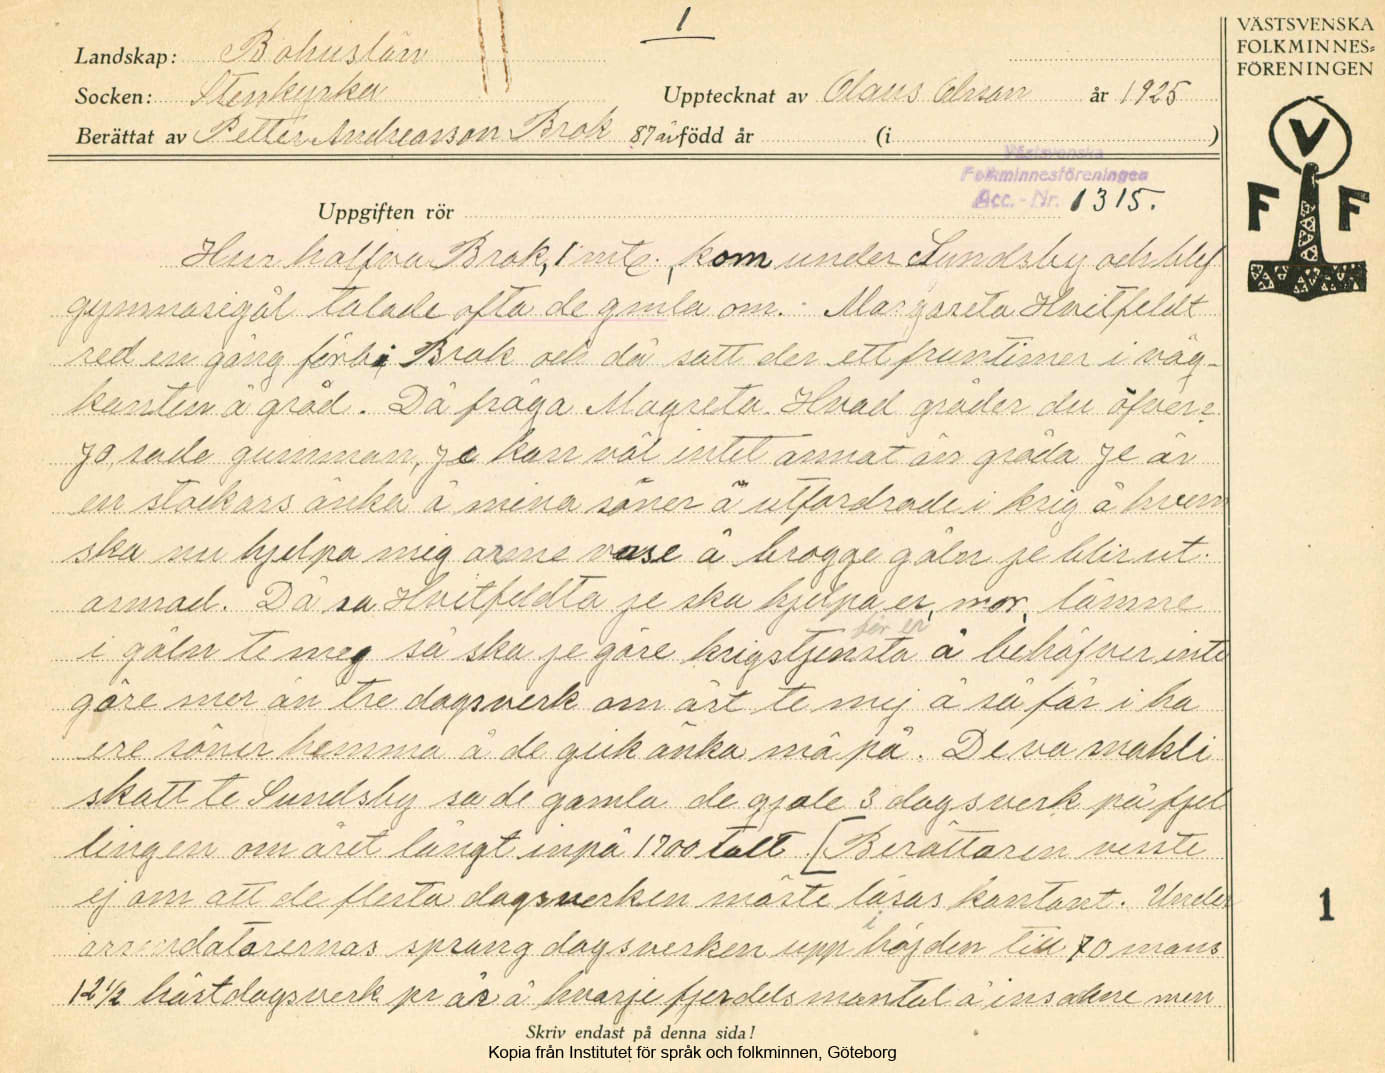 1
Landskap: Bohuslän
Socken: Stenkyrka
Upptecknat av Olaus Olsson år 1925
Berättat av Petter Andreasson Brok 87 år född år (i )
VÄSTSVENSKA
FOLKMINNES-
FÖRENINGEN
V
F F
Västsvenska
Folkminnesföreningen
Acc.-Nr. 1315.
Uppgiften rör
Hur halfva Brok, 1 mtl., kom under Sundsby och blef
gymnasigål talade ofta de gmla om. Margareta Hvitfeldt
red en gång förbi Brok och då satt der ett fruntimer i väg-
kanten å gråd. Då fråga Magreta. Hvad gråder du öfver?
Jo, sade gumman, je kan väl intet annat än gråda je är
en stackars änka å mina söner ä utfordrade i krig å hvem
ska nu hjelpa mig arme vase å brogge gåln je blir ut-
armad. Då sa Hvitfeldta je ska hjelpa er, mor, lämne
i gåln te meg så ska je göre krigstjensta för er å behöfver inte
göre mer än tre dagsverk om årt te mej å så får i ha
ere söner hemma å de geck änka må på. De va makli
skatt te Sundsby sa de gamla de gjole 3 dagsverk på fjel
lingen om året långt inpå 1700 talt. [Berättaren visste
ej om att de flesta dagsverken måste lösas kontant. Under
arrendatorernas sprang dagsverken upp i höjden till 70 mans
12 1/2 hästdagsverk pr år å hvarje fjerdels mantal å insokne men
1
Skriv endast på denna sida!
Kopia från Institutet för språk och folkminnen, Göteborg